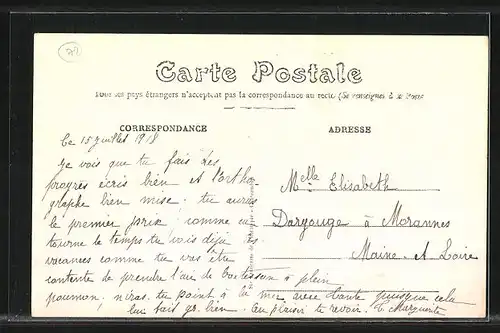 72
Carte Postale
Tous les pays étrangers n'acceptent pas la correspondance au recto (Se renseigner à la Poste
CORRESPONDANCE
ADRESSE
Le 15 juillet 1918
Je vois que tu fais des
progrès écris bien et l'ortho
graphe bien mise. tu auras
le premier prix, comme ça
tourne le temps tu vois déjà les
vacances comme tu vas être
contente de prendre l'air de à plein
poumon, n'iras tu point à la mer avec tante puisque cela
lui fait gr. bien. Au plaisir te revoir. Marguerite
Melle Elisabeth
Daryouge à Morannes
Maine-et-Loire